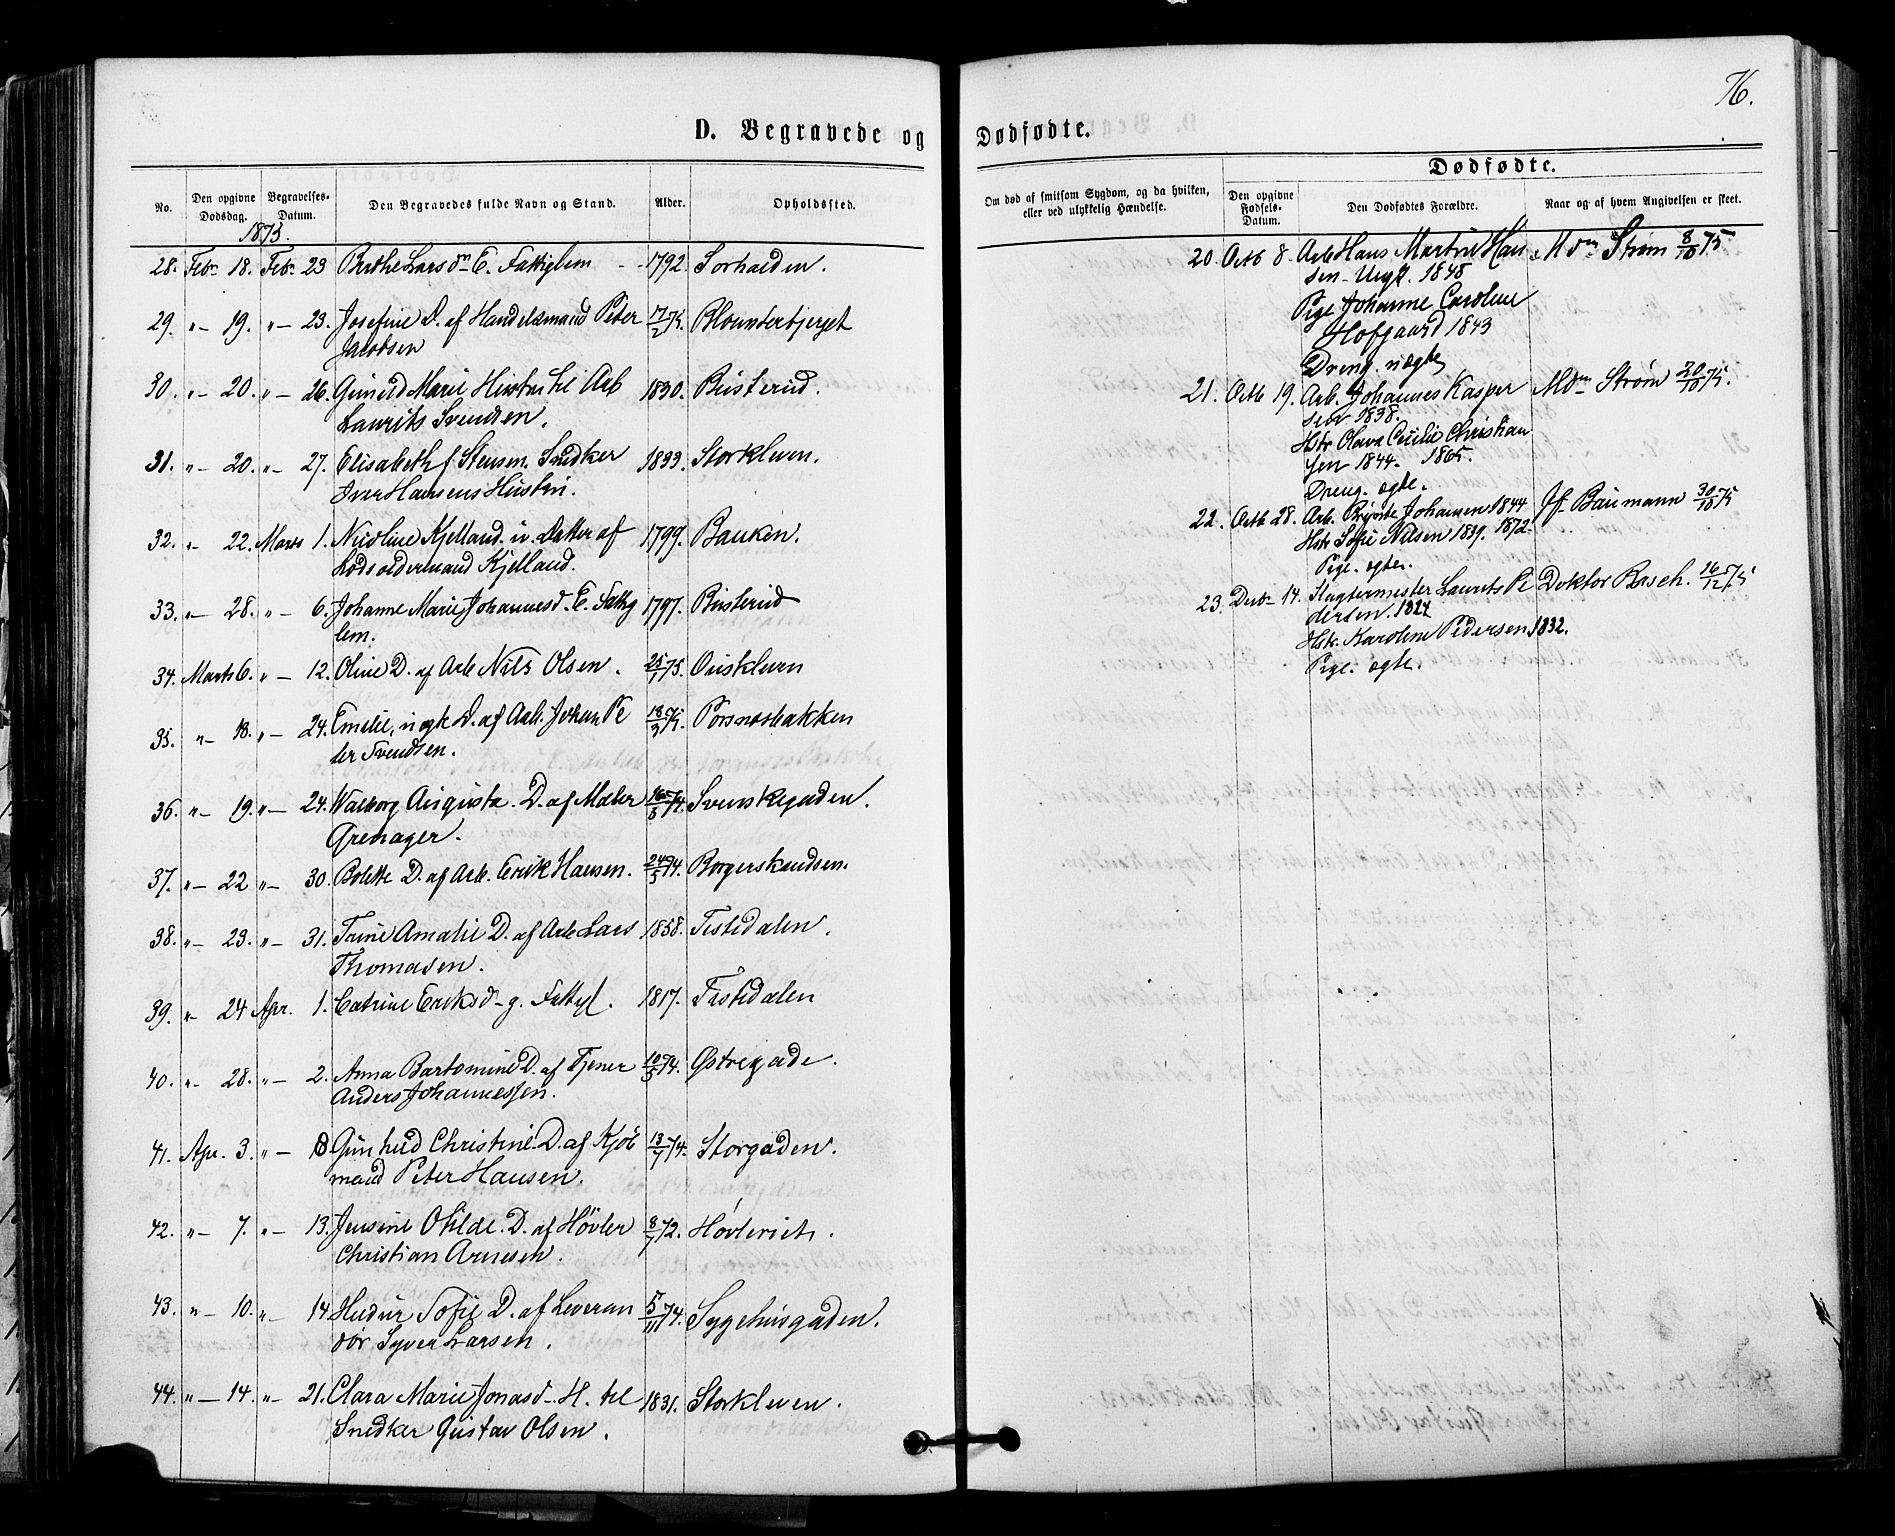 76.
D. Begravede og Dødfødte.
Dødfødte.
No.
Den opgivne Dødsdag.
Begravelses-Datum.
Den Begravedes fulde Navn og Stand.
Alder.
Opholdssted.
Om død af smitsom Sygdom, og da hvilken, eller ved ulykkelig Hændelse.
Den opgivne Fødsels-Datum.
Den Dødfødtes Forældre.
Naar og af hvem Angivelsen er skeet.
1875.
28. Febr. 18. Febr. 23 Berthe Larsdr E. Fattiglem - 1792. Sorhalden.
29. " - 19. " - 23. Josefine D. af Handelsmand Peter 17/2 75. Blounterbjerget
Jacobsen
30. " - 20. " - 26. Gunild Marie Hustru til Arb 1830. Busterud.
Laurits Svendsen.
31. " - 20. " - 27. Elisabeth f. Stensen. Snedker 1833. Storkleven.
Iver Hansens Hustru.
32. " 22. Marts 1. Nicoline Kjelland. u. Datter af 1799. Banken.
Lodsoldermand Kjelland.
33. " - 28. " - 6. Johanne Marie Johannesd. E. Fattig 1797. Busterud
lem.
34. Marts 6. " - 12. Oline D. af Arb Nils Olsen. 25/1 75. Ouskleven
35. " - 18. " - 24. Emilie, uægte D. af Arb. Johan Pe 13/3 75. Porsnæsbakken
ter Svendsen.
36. " - 19. " - 24. Walborg Augusta. D. af Maler 16/5 74. Svenskegaden.
Grenager.
37. " - 22 " - 30. Bolette D. af Arb. Erik Hansen. 24/5 74. Borgerskandsen.
38. " - 23. " - 31. Trine Amalie D. af Arb Lars 1858. Tistedalen.
Thomasen.
39. " - 24 Apr. 1. Catrine Eriksd - g. Fattigl. 1817. Tistedalen
40. " - 28. " - 2. Anna Bartomine D. af Tjener 10/5 74. Østregade.
Anders Johannessen.
41. Apr. 3. " - 8 Gunhild Christine D. af Kjøb 13/7 74. Storgaden.
mand Peter Hansen.
42. " - 7. " - 13. Jensine Otilde. D. af Høvler 8/7 72. Høvleriet.
Christian Arnesen.
43. " - 10. " - 14. Sofie D. af Leveran 5/11 74. Sygehusgaden.
dør Syver Larsen.
44. " - 14. " - 21. Clara Marie Jonasd - H. til 1831. Storkleven.
Snedker Gustav Olsen.
20. Octb 8. Arb Hans Martin Han Mdm Strøm 8/10 75
sen - Ungk. 1848
Pige Johanne Caroline
Hofgaard 1843
Dreng. uægte
21. Octb 19. Arb. Johannes Kasper Mdm Strøm 20/10 75.
sen 1838.
Hstr Olava Cecilie Christian
sen 1844. 1865.
Dreng. ægte.
22. Octb 28. Arb. Johansen 1844 Jf Baumann 30/10 75
Hstr Sofie Nilsen 1839. 1872.
Pige. ægte.
23. Decb 14. Slagtermester Laurits Pe Doktor Rasch. 16/12 75
dersen. 1827
Hstr. Karoline Pedersen 1832.
Pige. ægte.